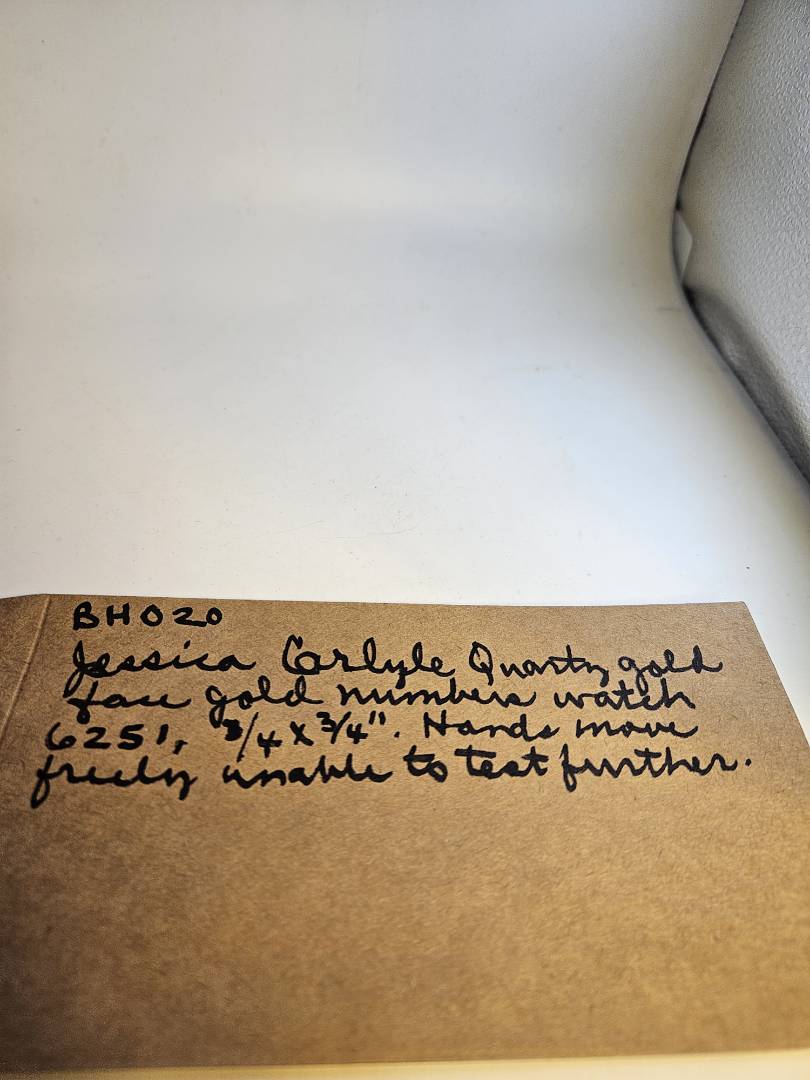 BH020
Jessica Carlyle Quartz gold
face gold numbers watch
6251, 3/4 x 3/4". Hands move
freely unable to test further.